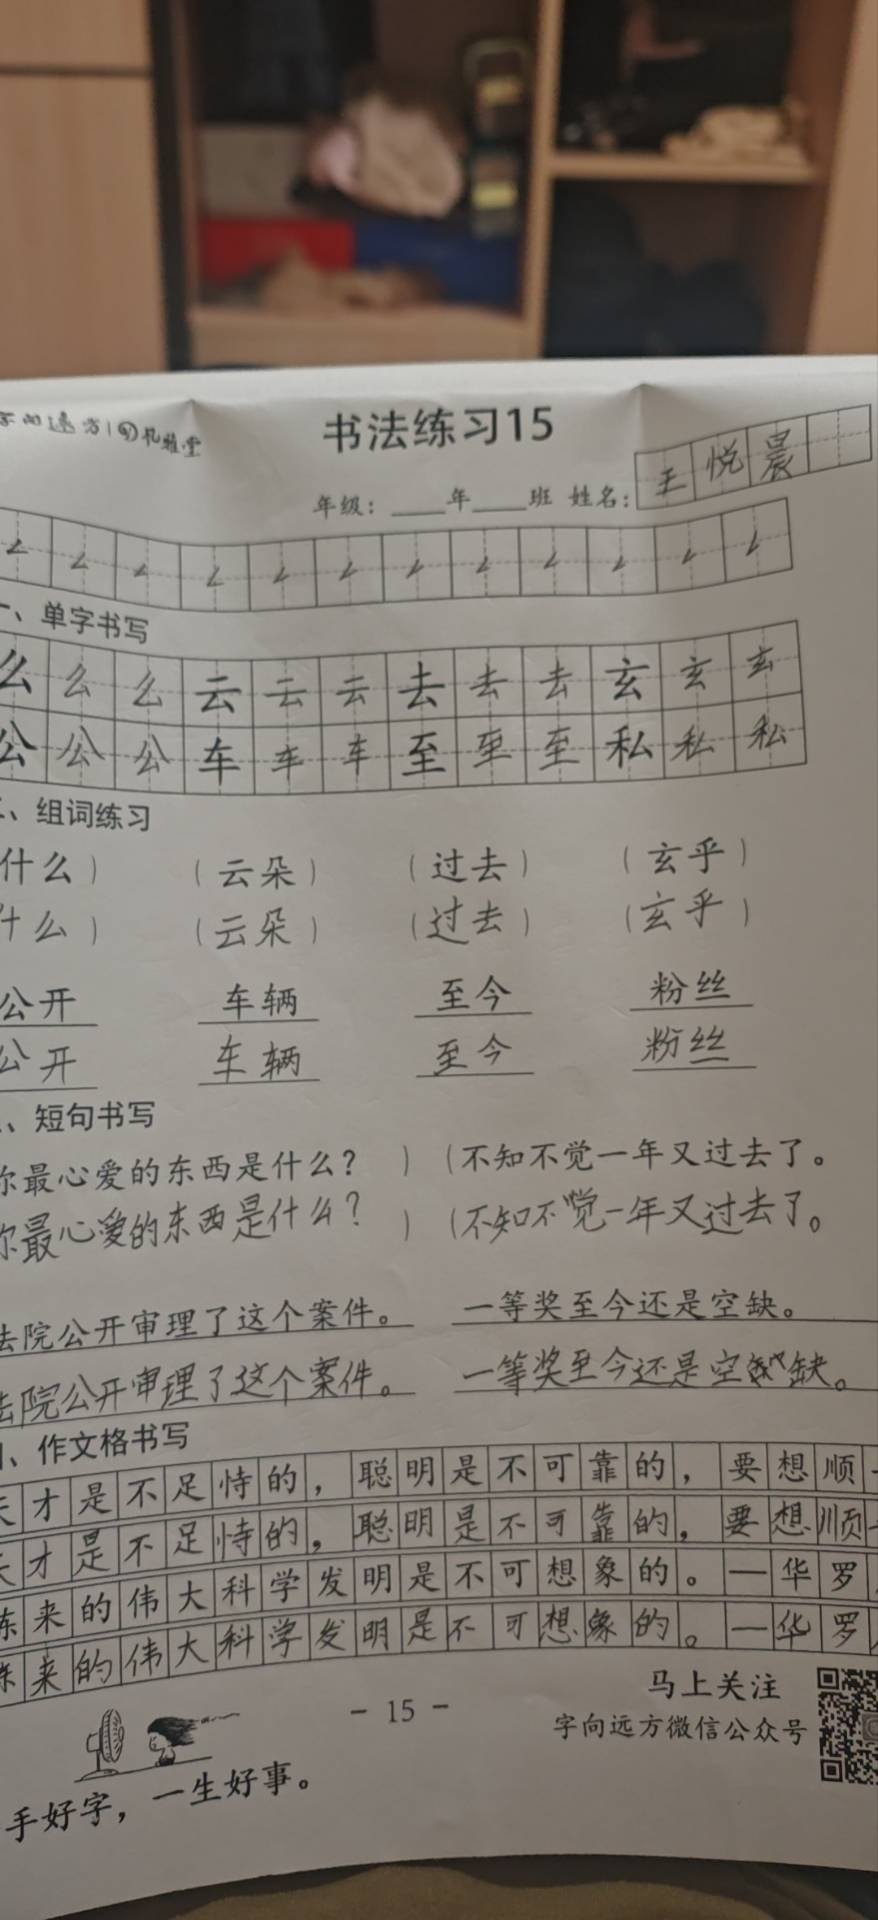 书法练习15
年级：____年____班 姓名：王悦晨
𠃋 𠃋 𠃋 𠃋 𠃋 𠃋 𠃋 𠃋 𠃋 𠃋 𠃋 𠃋
一、单字书写
么 么 么 云 云 云 去 去 去 玄 玄 玄
公 公 公 车 车 车 至 至 至 私 私 私
、组词练习
什么） （云朵） （过去） （玄乎）
什么） （云朵） （过去） （玄乎）
公开 车辆 至今 粉丝
公开 车辆 至今 粉丝
、短句书写
你最心爱的东西是什么？ ） （不知不觉一年又过去了。
你最心爱的东西是什么？ ） （不知不觉一年又过去了。
法院公开审理了这个案件。 一等奖至今还是空缺。
法院公开审理了这个案件。 一等奖至今还是空缺。
、作文格书写
天才是不足恃的，聪明是不可靠的，要想顺
天才是不足恃的，聪明是不可靠的，要想顺
来的伟大科学发明是不可想象的。—华罗
来的伟大科学发明是不可想象的。—华罗
马上关注
- 15 -
字向远方微信公众号
手好字，一生好事。